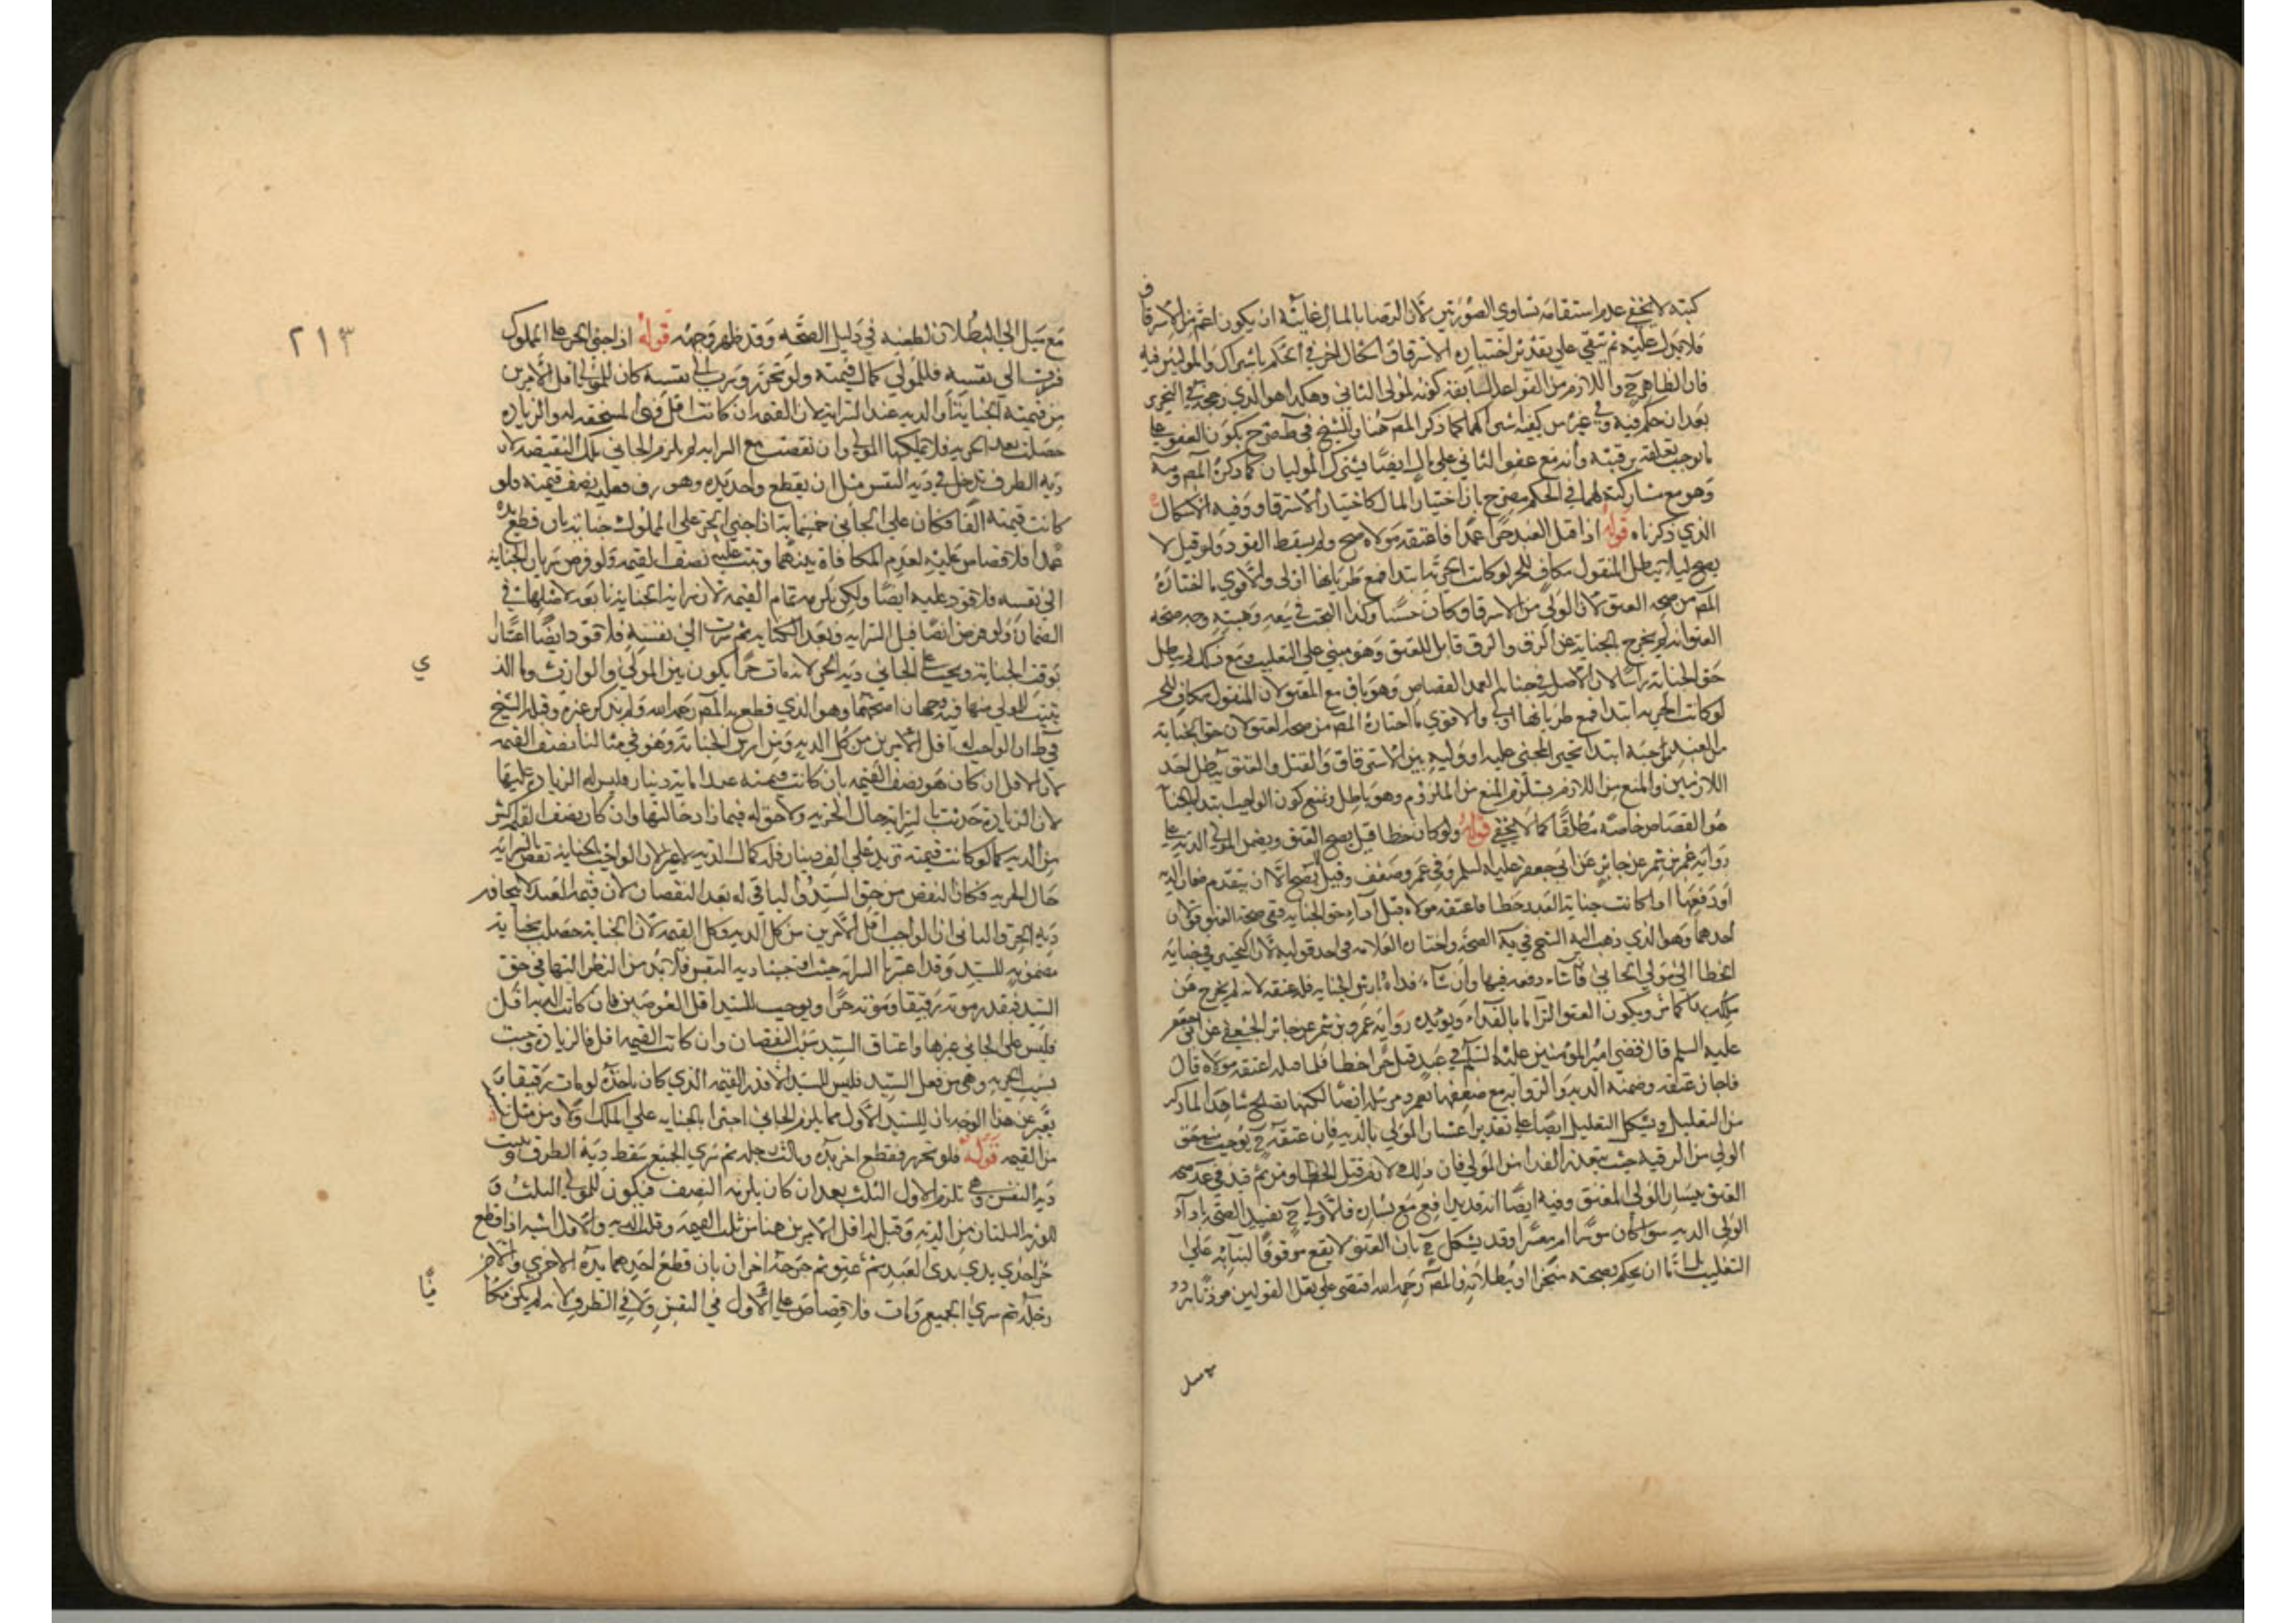 كبته لا يخفى عدم استقامة تساوي الصورتين لان الرضا بالمال غايته ان يكون اعم من الاسترقاق
فلا يدل عليه ثم يبقى على تقدير اختياره الاسترقاق اشكال اخر في الحكم باشتراك الموليين فيه
فان الظاهر ح واللازم من القواعد السابقة كونه لمولى الثاني وهكذا هو الذي رجحه في التحرير
بعد ان حكم فيه وفي غيره كما ذكر المص هنا والشيخ في ط صرح بكون العفو على
ما يوجب تعلقه برقبته وانه مع عفو الثاني على مال ايضا يشترك الموليان كما ذكره المص
وهو مع مشاركته لهما في الحكم مصرح بان اختيار المال كاختيار الاسترقاق وفيه الاشكال
الذي ذكرناه قوله اذا قتل العبد حرا عمدا فاعتقه مولاه صح ولم يسقط القود ولو قيل لا
يصح ليلا يبطل المقتول مكاف للحر لو كانت الحرية ابتدا فمع طريانها اولى والاقوى ما اختاره
المص من صحة العتق لان الولي من الاسترقاق كان حسنا وكذا البحث في بيعه وهبته وجه صحة
العتق انه لم يخرج بالجناية عن الرق والرق قابل للعتق وهو مبني على التغليب ومع ذلك لم يبطل
حق الجناية راسا لان الاصل في جناية العمد القصاص وهو باق مع العتق لان المقتول مكاف للحر
لو كانت الحرية ابتدا فمع طريانها اولى والاقوى ما اختاره المص من صحة العتق لان حق الجناية
من العبد موجبه ابتدا تخيير المجني عليه او وليه بين الاسترقاق والقتل والعتق يبطل احد
اللازمين والمنع من اللازم يستلزم المنع من الملزوم وهو باطل ونمنع كون الواجب ابتداء بالجناية
هو القصاص خاصة مطلقا كما لا يخفى قوله ولو كان خطا قيل يصح العتق ويضمن المولى الدية على
رواية عمر بن شمر عن جابر عن ابي جعفر عليه السلم وفي عمر وضعف وقيل لا يصح الا ان يتقدم ضمان الدية
او دفعها اذا كانت جناية العبد خطا فاعتقه مولاه قبل اداء حق الجناية ففي صحة العتق قولان
احدهما وهو الذي ذهب اليه الشيخ في يه الصحة واختاره العلامة في احد قوليه لان التخيير في جناية
الخطا الى مولى الجاني فان شاء دفعه فيها وان شاء فداه بارش الجناية فله عتقه لانه لم يخرج عن
ملكه بها كما مر ويكون العتق التزاما بالفداء ويؤيده رواية عمرو بن شمر عن جابر الجعفي عن ابي جعفر
عليه السلم قال قضى امير المؤمنين عليه السلم في عبد قتل حرا خطا فلما قتله اعتقه مولاه قال
فاجاز عتقه وضمنه الدية والرواية مع ضعفها بعمرو مرسلة ايضا لكنها تصلح شاهدا لما ذكر
من التعليل ويشكل التعليل ايضا على تقدير اعسار المولى بالدية فان عتقه ح يوجب سقوط حق
الولي من الرقبة حيث يتعذر الفداء من المولى فان ذلك لازم قتل الخطا ومن ثم قيد في عد صحة
العتق بيسار المولى المعتق وفيه ايضا انه قد يدافع مع يساره فالاولى ح تقييد الصحة باداء
الولى الدية سوا كان موسرا ام معسرا وقد يشكل ح بان العتق لا يقع موقوفا لبنائه على
التغليب فاما ان يحكم بصحته منجزا او ببطلانه والمص رحمه الله اقتصر على نقل القولين موذنا بتردده
مع ميل
مع ميل الى البطلان لطعنه في دليل الصحة وقد ظهر وجهه قوله اذا جنى الحر على المملوك
فسرت الى نفسه فللمولى كمال قيمته ولو تحرر وسرت الى نفسه كان للمولى اقل الامرين
من قيمة الجناية او الدية عند السراية لان القيمة ان كانت اقل فهي المستحقة له والزيادة
حصلت بعد الحرية فلا يملكها المولى وان نقصت مع السراية لم يلزم الجاني تلك النقيصة لان
دية الطرف تدخل في دية النفس مثل ان يقطع واحد يده وهو رق فعليه نصف قيمته فلو
كانت قيمته الفا فكان على الجاني خمسماية اذا جنى الحر على المملوك جناية بان قطع يده
عمدا فلا قصاص عليه لعدم المكافاة بينهما وثبت عليه نصف القيمة ولو فرض سريان الجناية
الى نفسه فلا قود عليه ايضا ولكن يلزمه تمام القيمة لان سراية الجناية تابعة لاصلها في
الضمان ولو فرض ايضا قبل السراية وبعد الجناية ثم سرت الى نفسه فلا قود ايضا اعتبارا
ي
بوقت الجناية ويجب على الجاني دية الحر لانه مات حرا يكون بين المولى والوارث وما الذ
يثبت للمولى منها فيه وجهان اصحهما وهو الذي قطع به المص رحمه الله ولم يذكر غيره وقبله الشيخ
في ط ان الواجب له اقل الامرين من كل الدية ومن ارش الجناية وهو في مثالنا نصف القيمة
لان الاقل ان كان هو نصف القيمة بان كانت قيمته عبدا ماية دينار فليس له الزيادة عليها
لان الزيادة حدثت بالسراية حال الحرية ولا حق له فيما زاد حالتها وان كان نصف القيمة اكثر
من الدية كما لو كانت قيمته تزيد على الفي دينار فله كمال الدية لا غير لان الواجب بالجناية نقص بالسراية
حال الحرية فكان النقص من حق السيد والباقي له بعد النقصان لان قيمة العبد لا يتجاوز
دية الحر والثاني ان الواجب اقل الامرين من كل الدية وكل القيمة لان الجناية حصلت بجناية
مضمونة للسيد وقد اعتبرنا السراية حيث اوجبنا دية النفس فلا بد من النظر اليها في حق
السيد فنقدر موته رقيقا وموته حرا ويوجب للسيد اقل العوضين فان كانت الدية اقل
فليس على الجاني غيرها واعتاق السيد سبب النقصان وان كانت القيمة اقل فالزيادة وجبت
بسبب الحرية وهي من فعل السيد فليس للسيد الا قدر القيمة الذي كان ياخذه لو مات رقيقا و
يعبر عن هذا الوجه بان للسيد الاول مما يلزم الجاني اخيرا بالجناية على الملك اولا ومن مثل نسبته
من القيمة قوله فلو تحرر فقطع اخر يده وثالث رجله ثم سرى الجميع سقط دية الطرف وثبت
دية النفس وهي تلزم الاول الثلث بعد ان كان يلزمه النصف فيكون للمولى الثلث و
للورثة الثلثان من الدية وقيل له اقل الامرين هنا من ثلث القيمة وثلث الدية والاول اشبه اذا قطع
حر احدى يدي العبد ثم عتق ثم جرحه اخران بان قطع احدهما يده الاخرى والاخر
رجله ثم سرى الجميع ومات فلا قصاص على الاول في النفس ولا في الطرف لانه لم يكن مكا
فيا
٢١٣